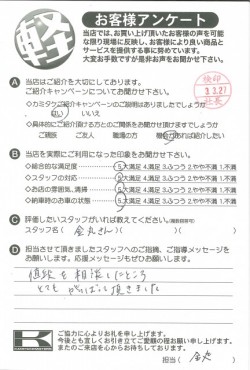 軽
お客様アンケート
当店では、お買い上げ頂いたお客様の声を可能
な限り現場に反映し、お客様により良い商品と
サービスを提供する事に努めています。
大変お手数ですが是非お声をお聞かせ下さい。
A 当店はご紹介を大切にしております。
ご紹介キャンペーンについてお聞かせ下さい。
検印
3.3.27
社長
◇カミタケご紹介キャンペーンのご説明はありましたでしょうか
はい いいえ
◇具体的にご紹介頂ける方とのご関係をお聞かせ頂けますでしょうか
ご親族 ご友人 職場の方 機会があれば紹介したい
B 当店を実際にご利用になった印象をお聞かせ下さい。
◇総合的な満足度 5大満足 4.満足 3.ふつう 2.やや不満 1.不満
◇スタッフの対応 5.大満足 4.満足 3.ふつう 2.やや不満 1.不満
◇お店の雰囲気、清掃 5.大満足 4.満足 3.ふつう 2.やや不満 1.不満
◇納車時のお車の状態 5.大満足 4.満足 3.ふつう 2.やや不満 1.不満
C 評価したいスタッフがいれば教えてください。(複数回答可)
スタッフ名( 金丸さん )( )
D 担当させて頂きましたスタッフへのご指摘、ご指導メッセージを
お願いします。応援メッセージもぜひお願いします。
値段を相談したところ
とてもがんばって頂きました
K
ご協力に心よりお礼を申し上げます。
今後とも宜しくお引き立てご愛顧の程お願い申し上げます。
またのご来店を心からお待ちしております。
担当( 金丸 )